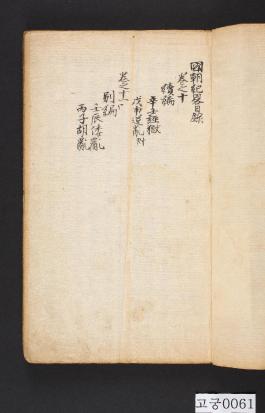 國朝紀畧目錄
卷之十
續編
辛壬誣獄
戊申逆亂附
卷之十一
別編
壬辰倭亂
丙子胡亂
고궁0061